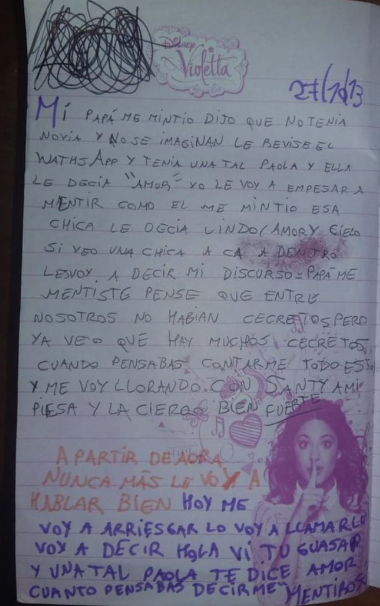 Disney
Violetta
27/10/13
Mi PAPÁ ME MINTIO DIJO QUE NO TENIA
NOVIA Y NO SE IMAGINAN LE REVISE EL
WATHSAPP Y TENIA UNA TAL PAOLA Y ELLA
LE DECIA "AMOR" YO LE VOY A EMPESAR A
MENTIR COMO EL ME MINTIO ESA
CHICA LE DECIA LINDO/AMOR Y CIELO
SI VEO UNA CHICA A CA A DENTRO
LES VOY A DECIR MI DISCURSO = PAPÁ ME
MENTISTE PENSE QUE ENTRE
NOSOTROS NO HABIAN CECRETOS PERO
YA VEO QUE HAY MUCHOS CECRETOS,
CUANDO PENSABAS CONTARME TODO ESTO
Y ME VOY LLORANDO CON SANTY A MI
PIESA Y LA CIERRO BIEN FUERTE
A PARTIR DE AORA
NUNCA MÁS LE VOY A
HABLAR BIEN HOY ME
VOY A ARRIESGAR LO VOY A LLAMARLO
VOY A DECIR HOLA VI TU GUASAP
Y UNA TAL PAOLA TE DICE AMOR
CUANTO PENSABAS DECIRME MENTIROSO